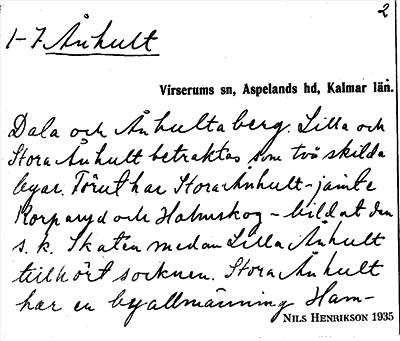 2
1-7 Ånhult
Virserums sn, Aspelands hd, Kalmar län.
Dala och Ånhultaberg. Lilla och
Stora Ånhult betraktas som två skilda
byar. Förut har Stora Ånhult - jämte
Korparyd och Holmskog - bildat den
s. k. Skaten medan Lilla Ånhult
tillhört socknen. Stora Ånhult
har en byallmänning Ham-
NILS HENRIKSON 1935